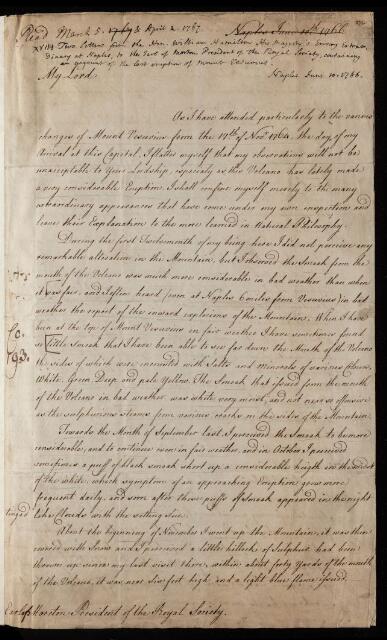 Read March 5. 1767 & April 2. 1767.
Naples June 10th 1766.
XVIII Two Letters from the Hon. William Hamilton His Majesty's Envoy Extraor-
dinary at Naples, to the Earl of Morton President of the Royal Society, containing
an account of the last eruption of Mount Vesuvius.
My Lord
Naples June 10. 1766.
As I have attended particularly to the various
changes of Mount Vesuvius from the 17th of Novr 1764, the day of my
Arrival at this Capital, I flatter myself that my observations will not be
unacceptable to Your Lordship, especially as this Volcano has lately made
a very considerable Eruption. I shall confine myself merely to the many
extraordinary appearances that have come under my own inspection and
leave their Explanation to the more learned in Natural Philosophy.
During the first Twelvemonth of my being here I did not perceive any
remarkable alteration in the Mountain, but I observed the Smoak from the
mouth of the Volcano was much more considerable in bad weather than when
it was fair, and I often heard (even at Naples 6 miles from Vesuvius) in bad
weather the report of the inward explosions of the Mountain. When I have
been at the top of Mount Vesuvius in fair weather I have sometimes found
so little Smoak that I have been able to see far down the Mouth of the Volcano
the sides of which were incrusted with Salts and Minerals of various colours,
White, Green, Deep and pale Yellow. The Smoak that issued from the mouth
of the Volcano in bad weather was white, very moist, and not near so offensive
as the sulphurious steams from various cracks in the sides of the Mountain.
Towards the Month of September last I perceived the Smoak to be more
considerable, and to continue even in fair weather, and in October I perceived
sometimes a puff of black smoak shoot up a considerable height in the midst
of the white, which symptom of an approaching Eruption grew more
frequent daily, and soon after these puffs of Smoak appeared in the night
tinged
like clouds with the setting sun.
About the beginning of November I went up the Mountain, it was then
covered with Snow and I perceived a little hillock of Sulphur had been
thrown up since my last visit there, within about forty yards of the mouth
of the Volcano, it was near Six feet high, and a light blue flame issued
Earl of Morton President of the Royal Society.